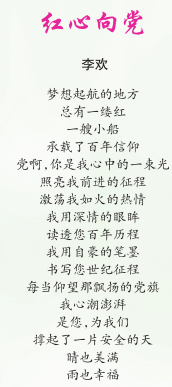 红心向党
李欢
梦想起航的地方
总有一缕红
一艘小船
承载了百年信仰
党啊，你是我心中的一束光
照亮我前进的征程
激荡我如火的热情
我用深情的眼眸
读透您百年历程
我用自豪的笔墨
书写您世纪征程
每当仰望那飘扬的党旗
我心潮澎湃
是您，为我们
撑起了一片安全的天
晴也美满
雨也幸福